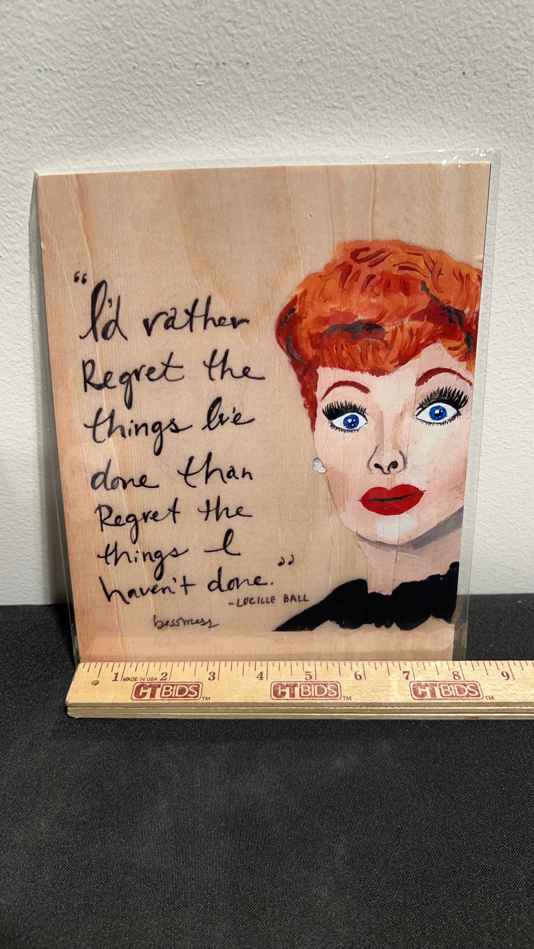 “I'd rather
Regret the
things I've
done than
Regret the
things I
haven't done.”
-LUCILLE BALL
bessmess
1 2 3 4 5 6 7 8 9
MADE IN USA
CTBIDS™ CTBIDS™ CTBIDS™